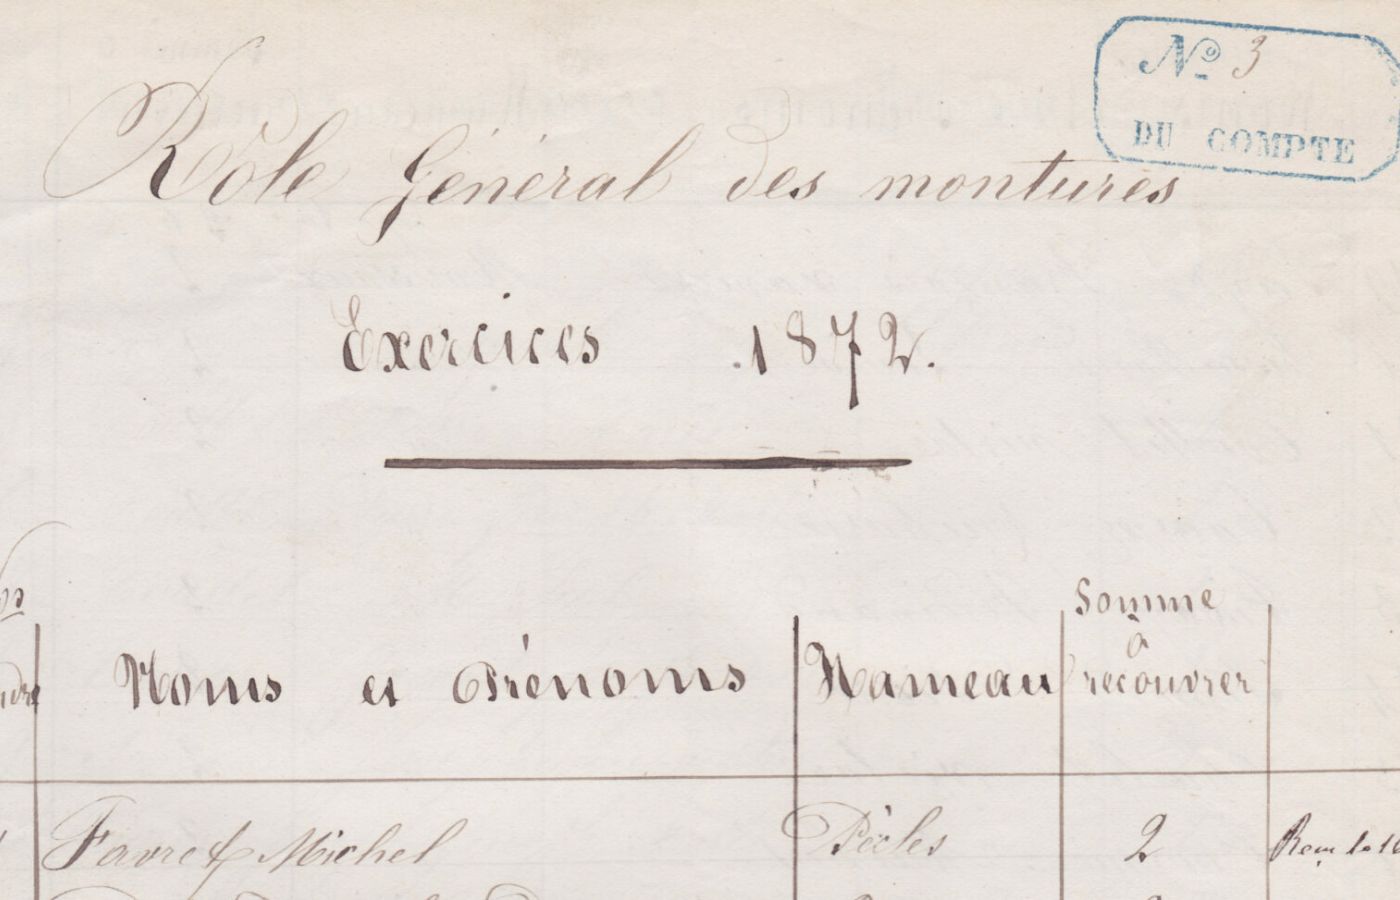 Nº 3
DU COMPTE
Rôle Général des montures
Exercices 1872.
Noms et Prénoms
Hameau
Somme
à
recouvrer
Favret Michel
Pècles
2